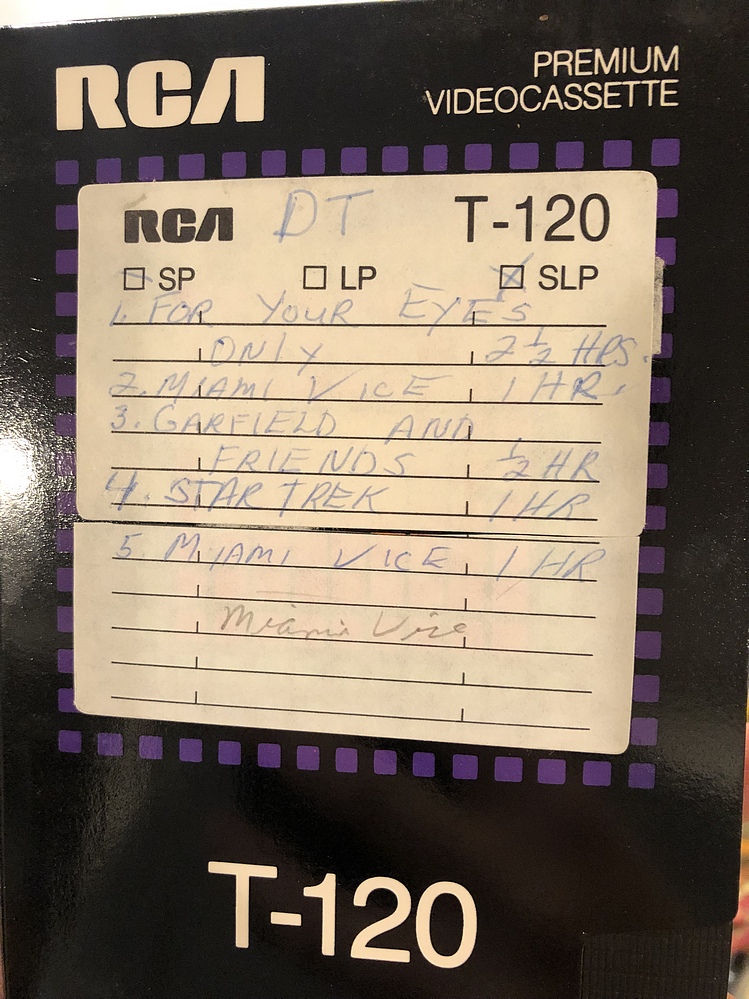 RCA
PREMIUM
VIDEOCASSETTE
RCA DT T-120
SP LP SLP
1. FOR YOUR EYES
ONLY 2 1/2 HRS.
2. MIAMI VICE 1 HR.
3. GARFIELD AND
FRIENDS 1/2 HR
4. STAR TREK 1 HR
5 MIAMI VICE 1 HR
Miami Vice
T-120